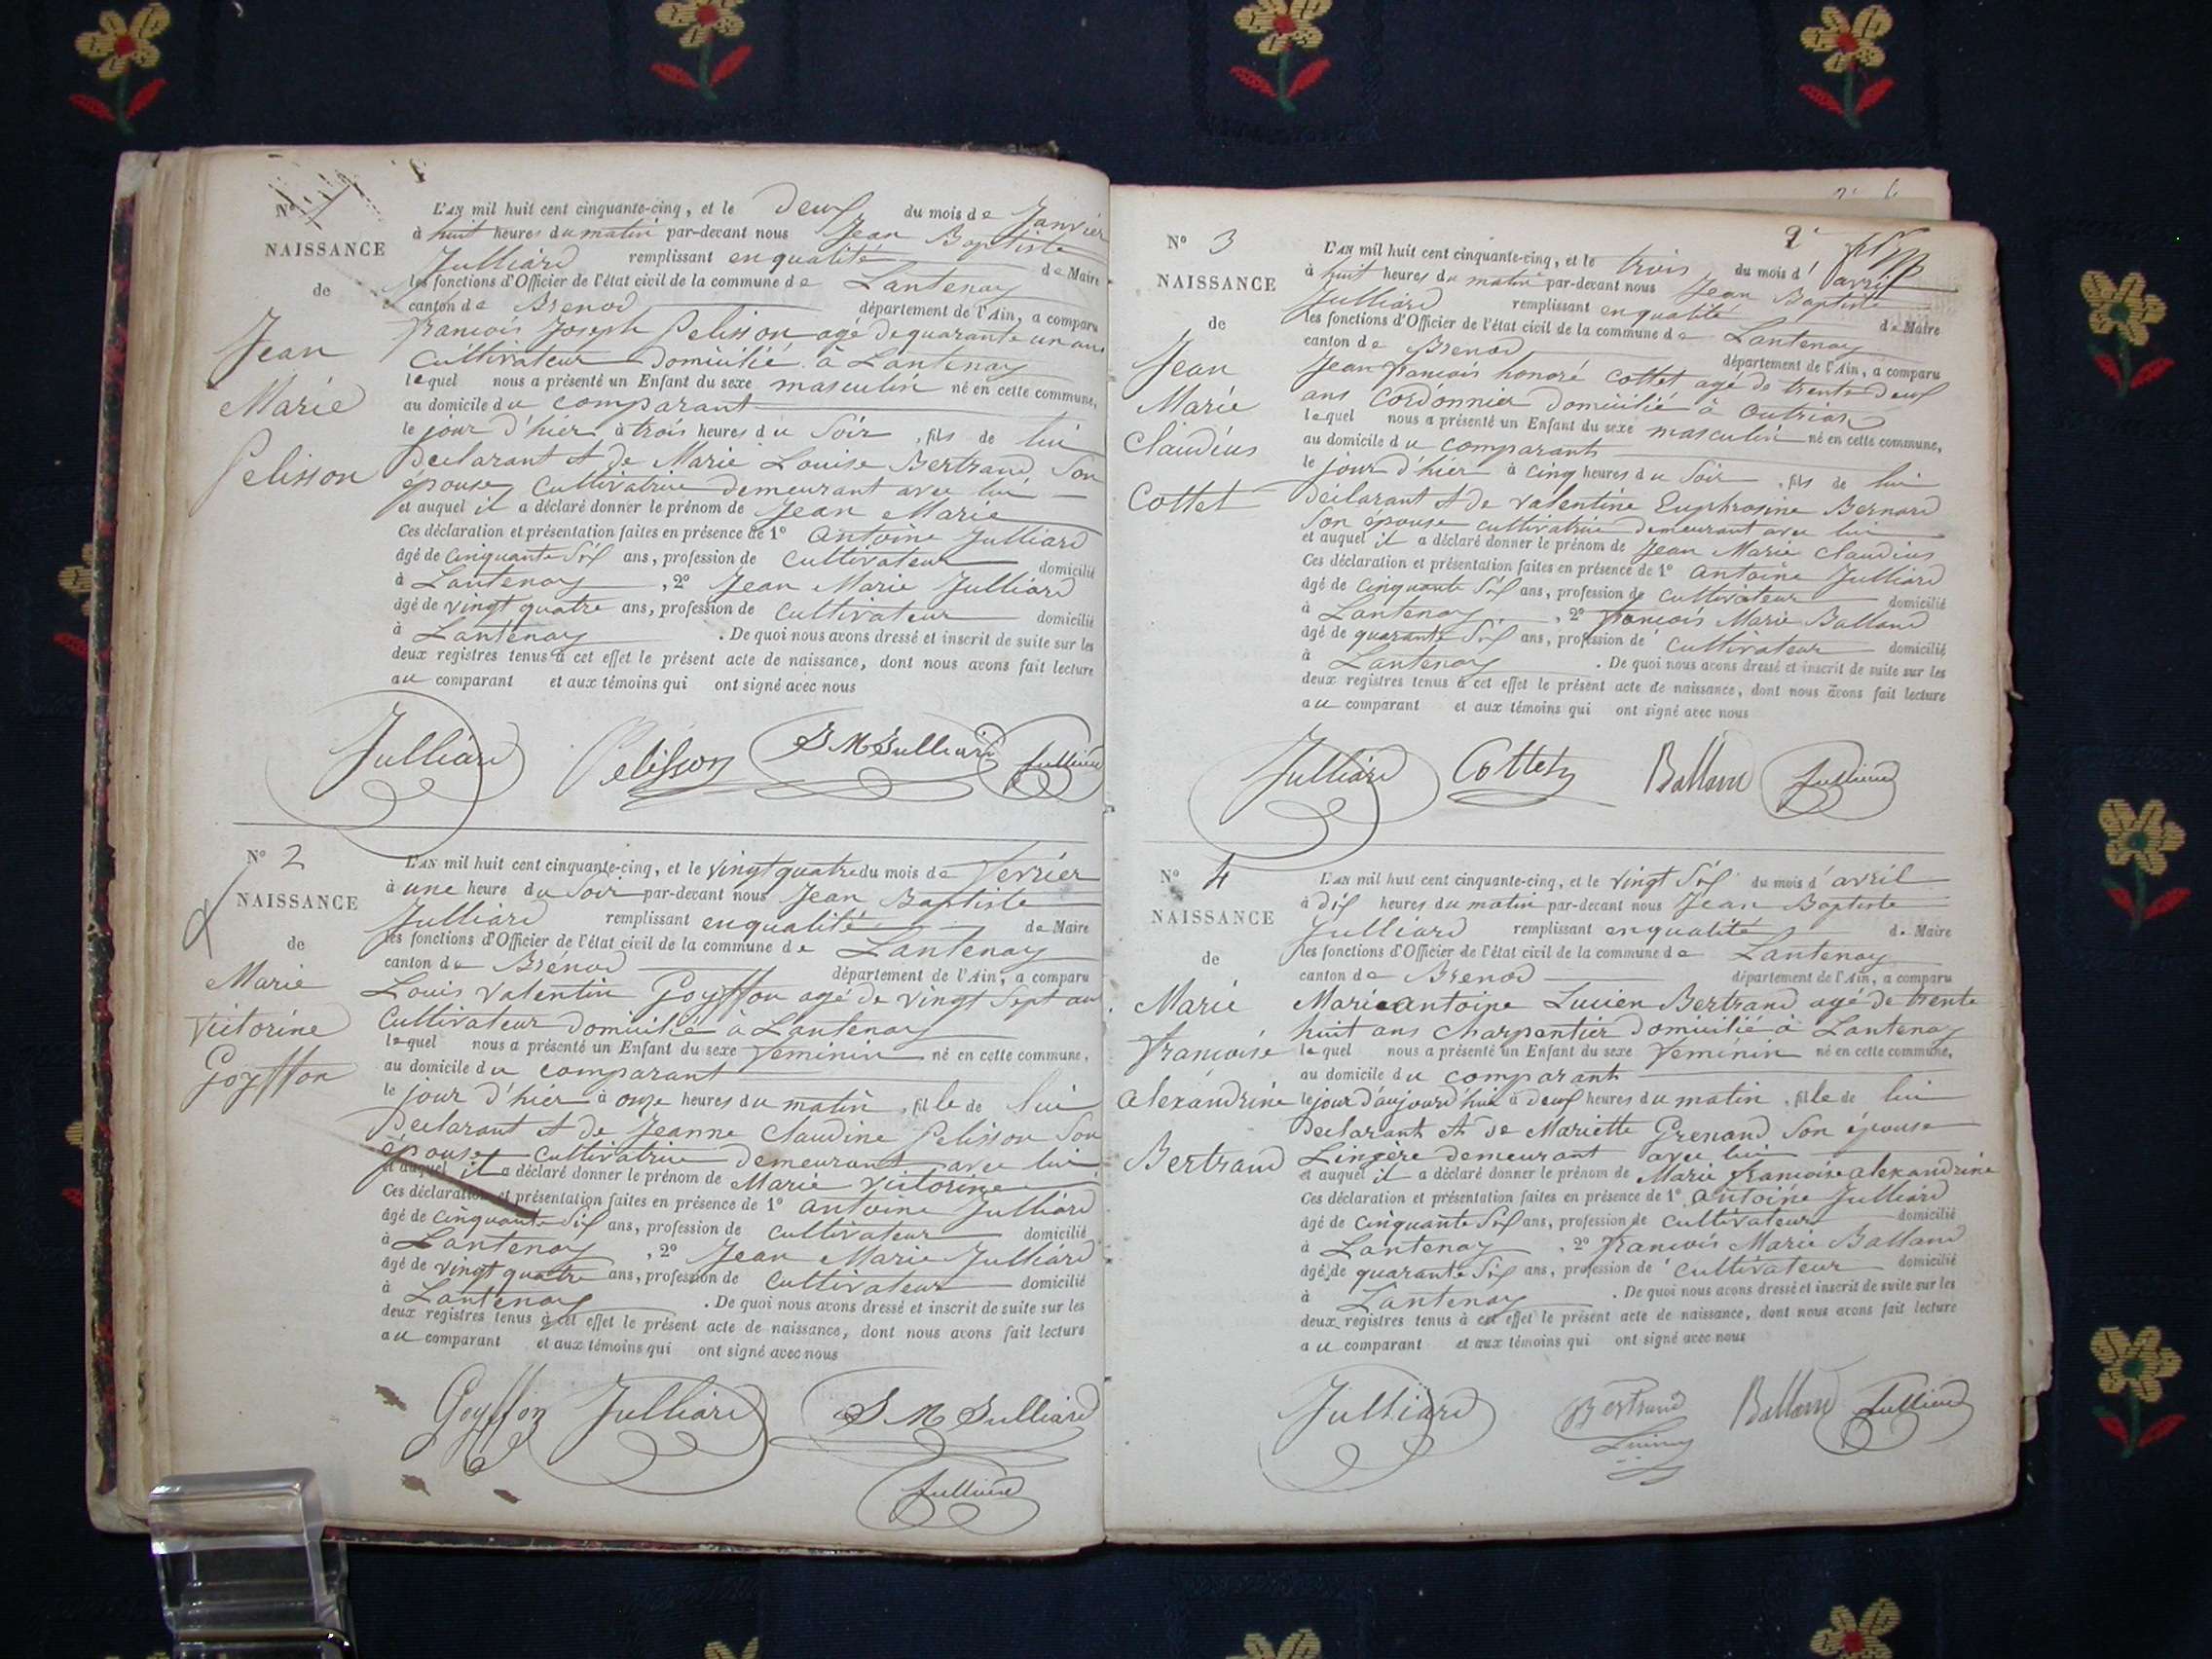 Nº 1
NAISSANCE
de
Jean
Marie
Pelisson
L'AN mil huit cent cinquante-cinq, et le deux du mois de Janvier
à huit heures du matin par-devant nous Jean Baptiste
Julliard remplissant en qualité de Maire
les fonctions d'Officier de l'état civil de la commune de Lantenay
canton de Brenod département de l'Ain, a comparu
françois Joseph Pelisson agé de quarante un ans
cultivateur domicilié à Lantenay
lequel nous a présenté un Enfant du sexe masculin né en cette commune,
au domicile du comparant
le jour d'hier à trois heures du Soir, fils de lui
Declarant et de Marie Louise Bertrand Son
épouse, cultivatrice demeurant avec lui
et auquel il a déclaré donner le prénom de Jean Marie
Ces déclaration et présentation faites en présence de 1º antoine Julliard
âgé de cinquante Six ans, profession de cultivateur domicilié
à Lantenay, 2º Jean Marie Julliard
âgé de vingt quatre ans, profession de cultivateur domicilié
à Lantenay. De quoi nous avons dressé et inscrit de suite sur les
deux registres tenus à cet effet le présent acte de naissance, dont nous avons fait lecture
au comparant et aux témoins qui ont signé avec nous
Julliard Pelisson J M Julliard Julliard
Nº 2
NAISSANCE
de
Marie
victorine
Goyffon
L'AN mil huit cent cinquante-cinq, et le vingt quatre du mois de fevrier
à une heure du Soir par-devant nous Jean Baptiste
Julliard remplissant en qualité de Maire
les fonctions d'Officier de l'état civil de la commune de Lantenay
canton de Brénod département de l'Ain, a comparu
Louis valentin Goyffon agé de vingt Sept ans
cultivateur domicilié à Lantenay
lequel nous a présenté un Enfant du sexe feminin né en cette commune,
au domicile du comparant
le jour d'hier à onze heures du matin, fille de lui
Declarant et de Jeanne claudine Pelisson Son
épouse, cultivatrice demeurant avec lui
et auquel il a déclaré donner le prénom de Marie victorine
Ces déclaration et présentation faites en présence de 1º antoine Julliard
âgé de cinquante Six ans, profession de cultivateur domicilié
à Lantenay, 2º Jean Marie Julliard
âgé de vingt quatre ans, profession de cultivateur domicilié
à Lantenay. De quoi nous avons dressé et inscrit de suite sur les
deux registres tenus à cet effet le présent acte de naissance, dont nous avons fait lecture
au comparant et aux témoins qui ont signé avec nous
Goyffon Julliard J M Julliard
Julliard
Nº 3
NAISSANCE
de
Jean
Marie
Claudius
Cottet
L'AN mil huit cent cinquante-cinq, et le trois du mois d'avril
à huit heures du matin par-devant nous Jean Baptiste
Julliard remplissant en qualité de Maire
les fonctions d'Officier de l'état civil de la commune de Lantenay
canton de Brenod département de l'Ain, a comparu
Jean françois honoré Cottet agé de trente deux
ans Cordonnier domicilié à Outriaz
lequel nous a présenté un Enfant du sexe masculin né en cette commune,
au domicile du comparant
le jour d'hier à cinq heures du Soir, fils de lui
Déclarant et de valentine Euphrosine Bernard
Son épouse cultivatrice demeurant avec lui
et auquel il a déclaré donner le prénom de Jean Marie claudius
Ces déclaration et présentation faites en présence de 1º antoine Julliard
âgé de cinquante Six ans, profession de cultivateur domicilié
à Lantenay, 2º françois Marie Balland
âgé de quarante Six ans, profession de cultivateur domicilié
à Lantenay. De quoi nous avons dressé et inscrit de suite sur les
deux registres tenus à cet effet le présent acte de naissance, dont nous avons fait lecture
au comparant et aux témoins qui ont signé avec nous
Julliard Cottet Balland Julliard
Nº 4
NAISSANCE
de
Marie
françoise
alexandrine
Bertrand
L'AN mil huit cent cinquante-cinq, et le vingt Six du mois d'avril
à dix heures du matin par-devant nous Jean Baptiste
Julliard remplissant en qualité de Maire
les fonctions d'Officier de l'état civil de la commune de Lantenay
canton de Brenod département de l'Ain, a comparu
Marie antoine Lucien Bertrand agé de trente
huit ans charpentier domicilié à Lantenay
lequel nous a présenté un Enfant du sexe feminin né en cette commune,
au domicile du comparant
le jour d'aujourd'hui à deux heures du matin, fille de lui
Declarant et de Mariette Grenand Son épouse
Lingère demeurant avec lui
et auquel il a déclaré donner le prénom de Marie françoise alexandrine
Ces déclaration et présentation faites en présence de 1º antoine Julliard
âgé de cinquante Six ans, profession de cultivateur domicilié
à Lantenay, 2º françois Marie Balland
âgé de quarante Six ans, profession de cultivateur domicilié
à Lantenay. De quoi nous avons dressé et inscrit de suite sur les
deux registres tenus à cet effet le présent acte de naissance, dont nous avons fait lecture
au comparant et aux témoins qui ont signé avec nous
Julliard Bertrand Balland Julliard